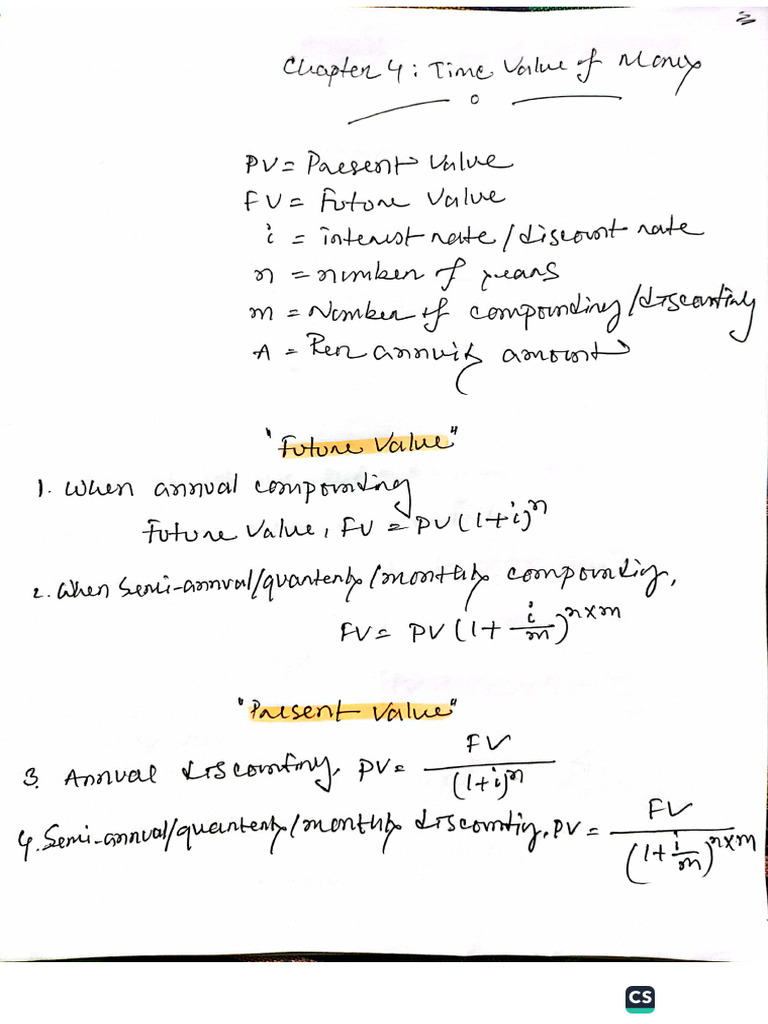 Chapter 4: Time Value of Money
PV = Present Value
FV = Future Value
i = interest rate/discount rate
n = number of years
m = Number of compounding/discounting
A = Per annuity amount
"Future Value"
1. When annual compounding
Future Value, FV = PV(1+i)^n
2. When Semi-annual/quarterly/monthly compounding,
FV = PV(1+ i/m)^n×m
"Present Value"
3. Annual discounting, PV = FV/(1+i)^n
4. Semi-annual/quarterly/monthly discounting, PV = FV/(1+ i/m)^n×m
CS